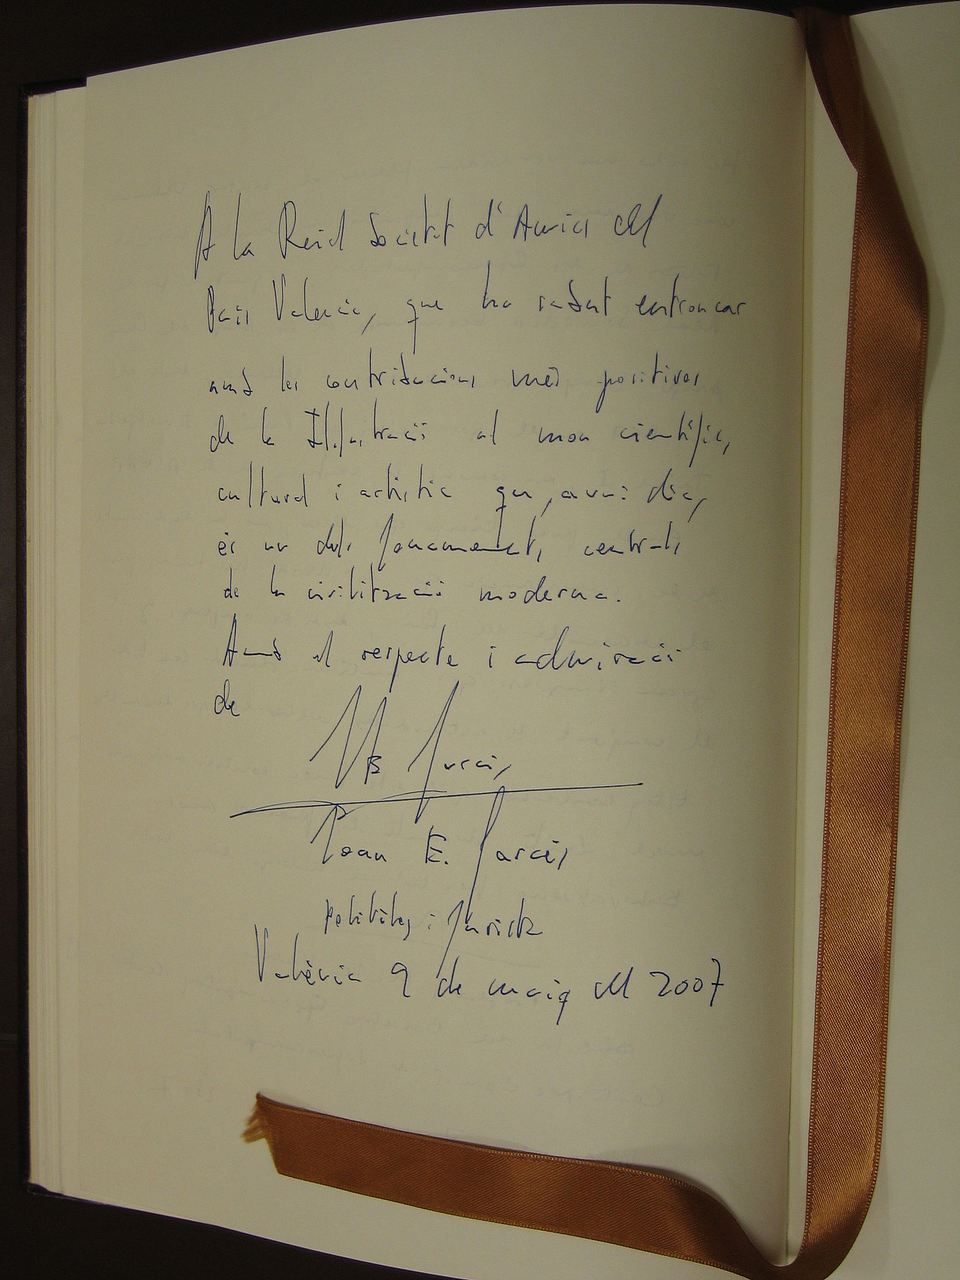 A la Reial Societat d'Amics del
País Valencià, que ha sabut entroncar
amb les contribucions més positives
de la Il·lustració al món científic,
cultural i artístic que, avui dia,
és un dels fonaments centrals
de la civilització moderna.
Amb el respecte i admiració
de
Garcés
Joan E. Garcés
Politòleg i jurista
València 9 de maig del 2007